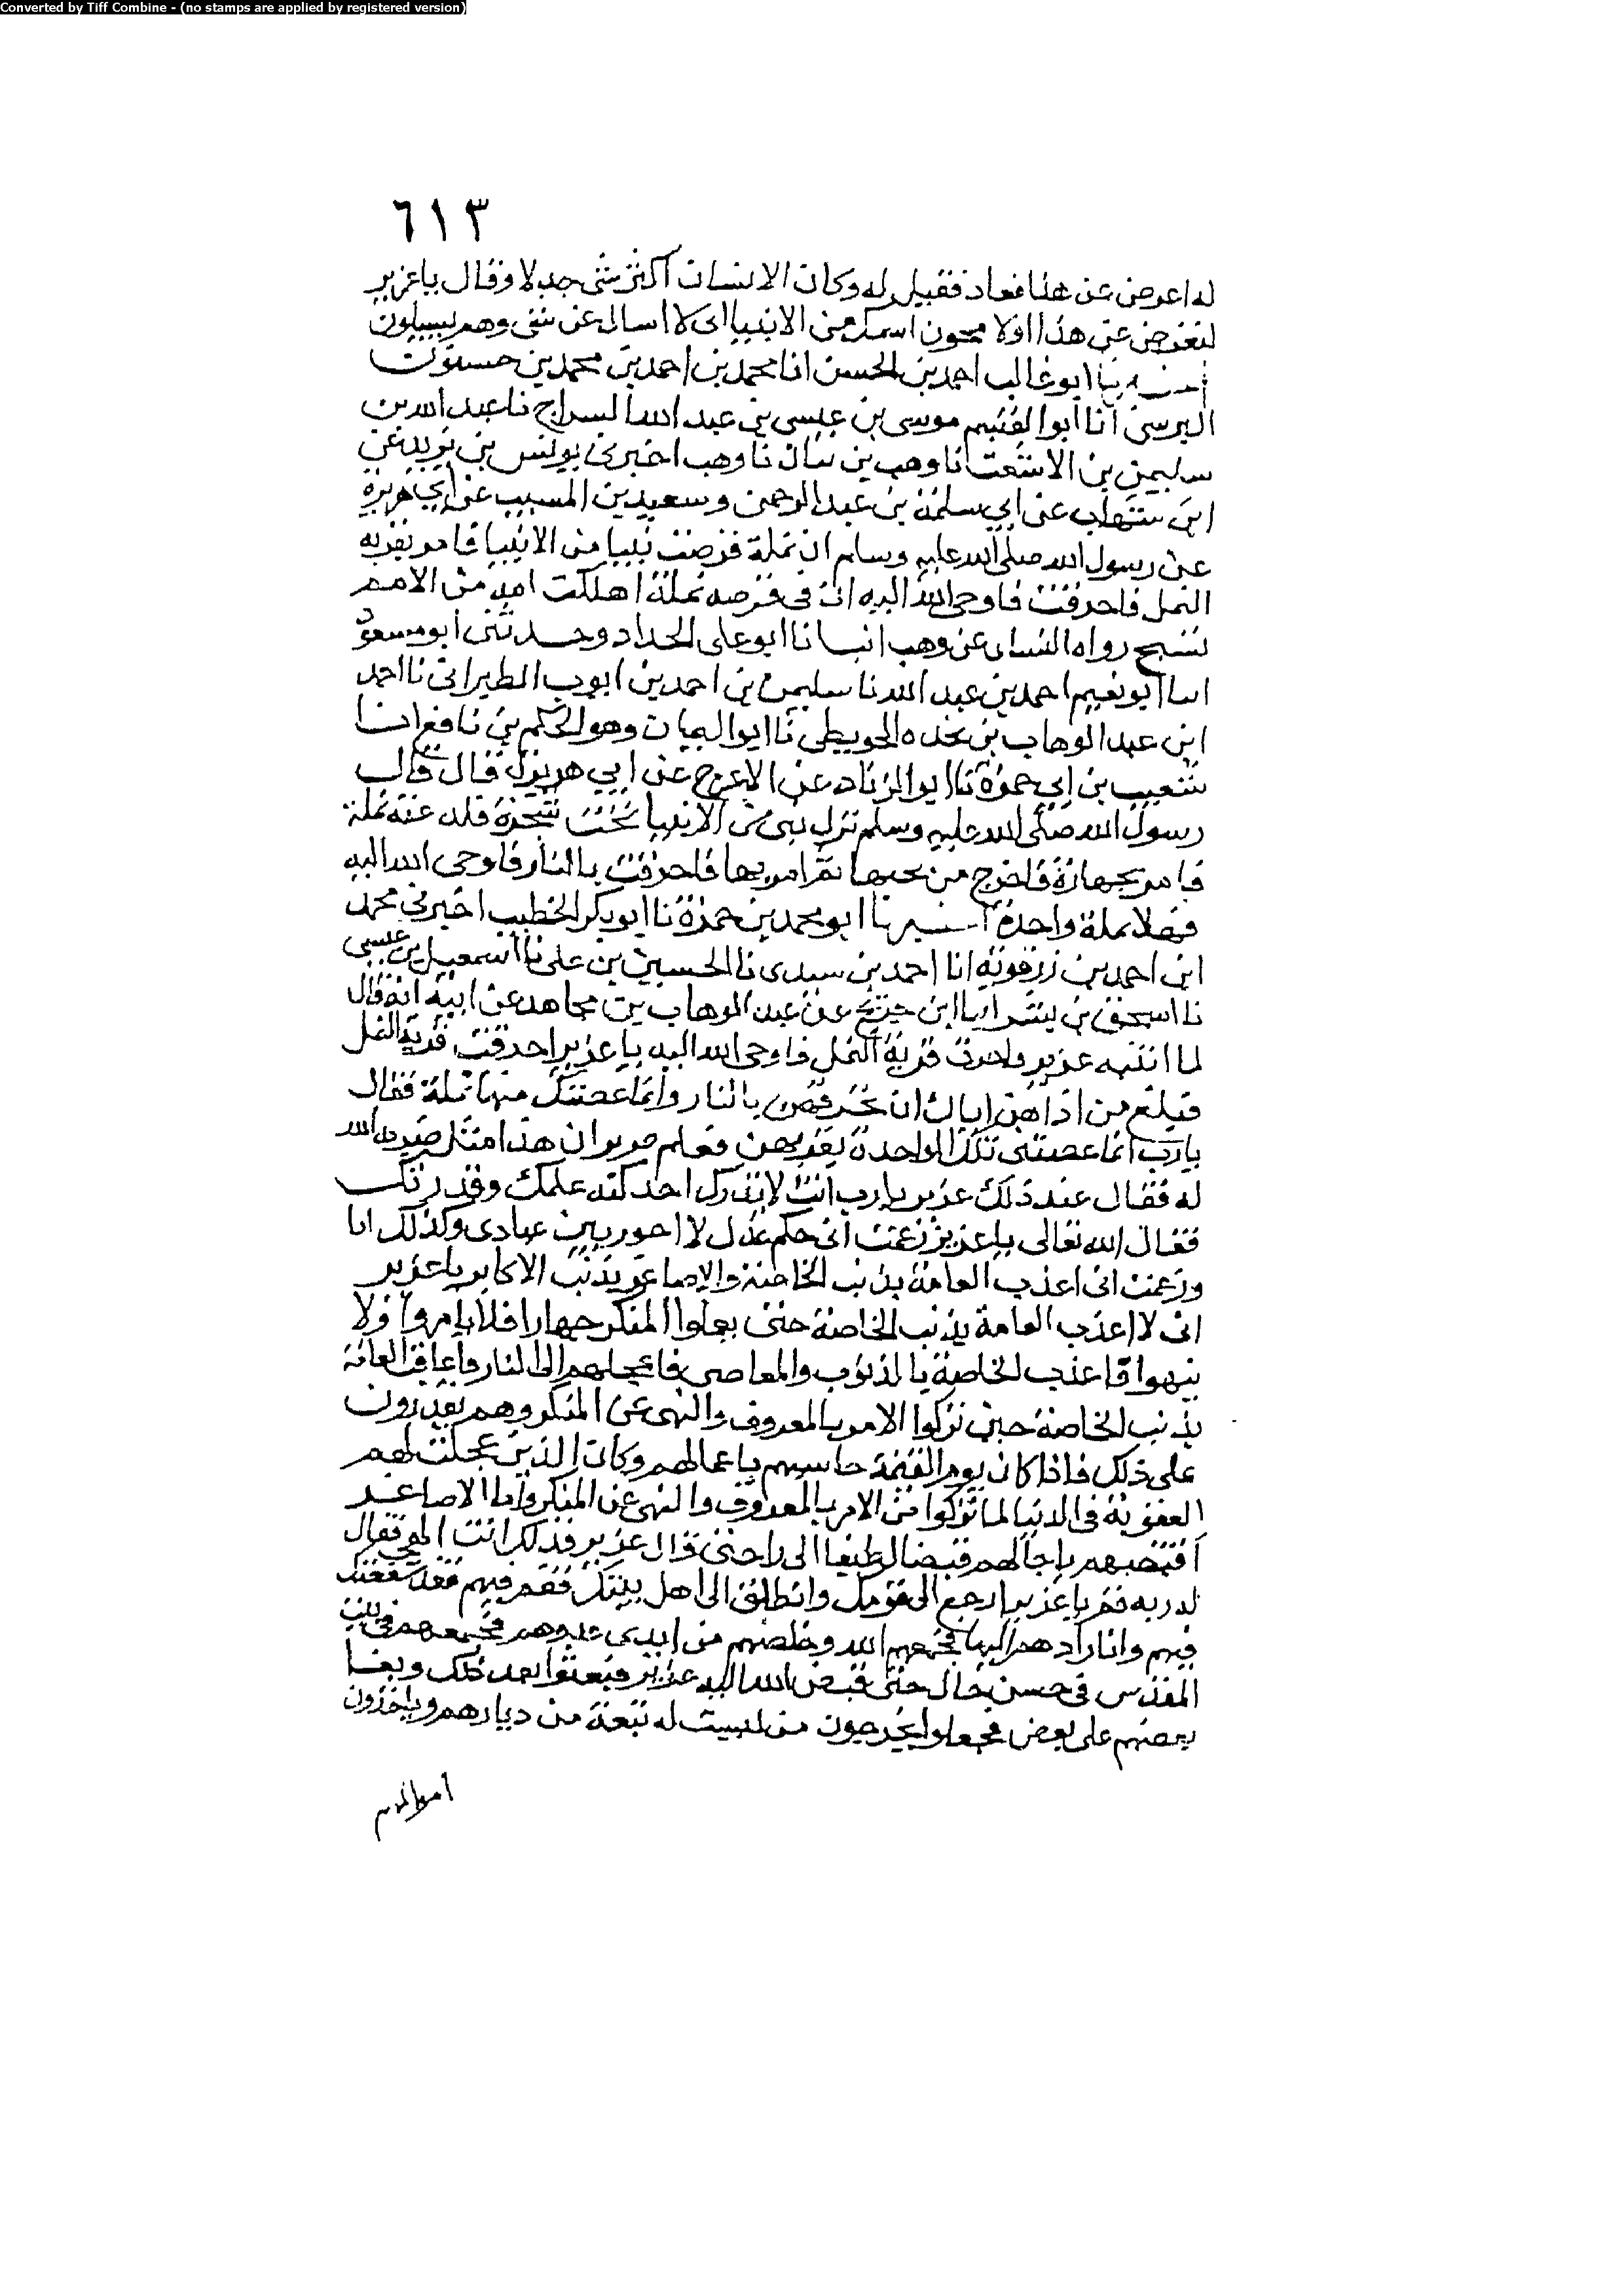 Converted by Tiff Combine - (no stamps are applied by registered version)
٦١٣
له اعرض عن هذا فعاد فقيل له وكان الانسان اكثر شى جدلا وقال يا عزير
لتعرض عن هذا اولا محون اسمك من الانبيا انى لا اسال عن شى وهم يسيلون
ابو غالب احمد بن الحسن انا محمد بن احمد بن محمد بن حسنون
البرسى انا ابوا القسم موسى بن عيسى بن عبد الله السراج نا عبد الله بن
سليمن بن الاشعت نا وهب بن بيان نا وهب اخبرنى يونس بن يزيد عن
ابن شهاب عن ابي سلمة بن عبد الرحمن وسعيد بن المسيب عن ابي هريرة
عن رسول الله صلى الله عليه وسلم ان نملة قرصت نبيا من الانبيا فامر بقرية
النمل فاحرقت فاوحى الله اليه ان فى قرصه نملة اهلكت امه من الامم
تسبح رواه النساى عن وهب انبانا ابو على الحداد وحدثنى ابو مسعود
انبا ابو نعيم احمد بن عبد الله نا سليمن بن احمد بن ايوب الطبرانى نا احمد
ابن عبد الوهاب بن نجده الحويطى نا ابوا اليمان وهو الحكم بن نافع انبا
شعيب بن ابي حمزة نا ابوا الزناد عن الاعرج عن ابي هريرة قال قال
رسول الله صلى الله عليه وسلم نزل نبى من الانبيا تحت شجرة فلدغته نملة
فامر بجهازة فاخرج من تحتها ثم امر بها فاحرقت بالنار فاوحى الله اليه
فهلا نملة واحدة ابو محمد بن حمزة نا ابو بكر الخطيب اخبرني محمد
ابن احمد بن زرقوية انا احمد بن سيدى نا الحسين بن على نا اسمعيل بن عيسى
نا اسحق بن بشر انبا ابن جريج عن عبد الوهاب بن مجاهد عن ابية انه قال
لما انتبه عزير واحرق قرية النمل فاوحى الله اليه يا عزير احرقت قرية النمل
فبلغ من اذاهن اياك ان تحرقهن بالنار وانما عضتك منها نملة فقال
يارب انما عضتنى تلك الواحدة بقوتهن فعلم عزير ان هذا مثل ضربه الله
له فقال عند ذلك عزير يا رب انت لا يدرك احد كنه علمك وقدرتك
فقال الله تعالى يا عزير زعمت انى حكم عدل لا اجور بين عبادى وكذلك انا
وزعمت انى اعذب العامة بذنب الخاصة والاصاغر بذنب الاكابر يا عزير
انى لا اعذب العامة بذنب الخاصة حتى يعملوا المنكر جهارا فلا يامروا ولا
ينهوا فاعذب الخاصة بالذنوب والمعاصى فاعجلهم الى النار واعاقب العامة
بذنب الخاصة حين تركوا الامر بالمعروف والنهى عن المنكر وهم يقدرون
على ذلك فاذا كان يوم القيمة حاسبهم باعمالهم وكان الذين عجلت لهم
العقوبة فى الدنيا لما تركوا من الامر بالمعروف والنهى عن المنكر واما الاصاغر
اقبضهم باجالهم قبضا لطيفا الى راحتى قال عزير فذلك انت الهى فقال
له ربه قم يا عزير ارجع الى قومك وانطلق الى اهل بيتك فقم فيهم فقد شفعتك
فيهم وانا رادهم اليها فجمعهم الله وخلصهم من ايدى عدوهم فجمعهم فى بيت
المقدس فى حسن حال حتى قبض الله اليه عزير فبعثوا بعد ذلك وبغا
بعضهم على بعض فجعلوا يخرجون من ليست له تبعة من ديارهم وياخذون
اموالهم